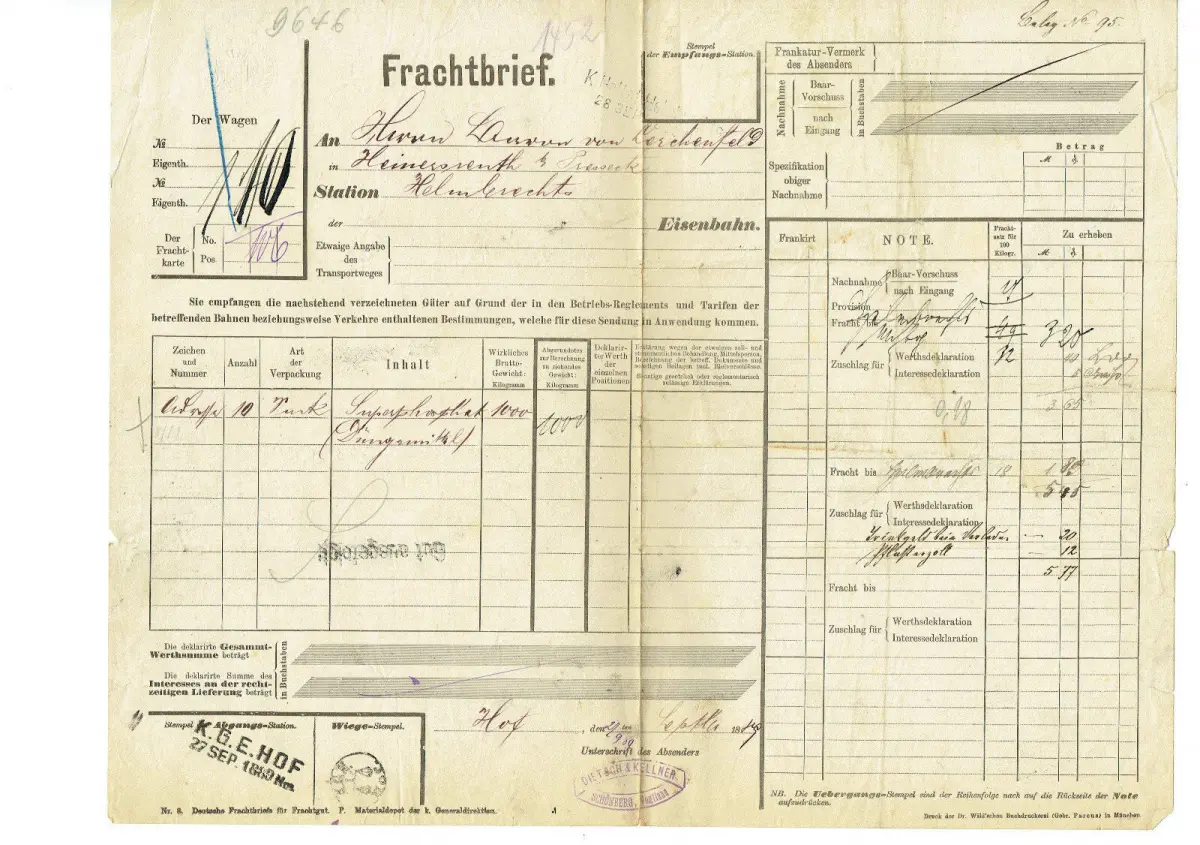 9646
1452
Beleg No 95.
Frachtbrief.
Stempel
der Empfangs-Station.
28 SEP
Der Wagen
№
Eigenth.
№
Eigenth.
110
Der
Fracht-
karte
No.
Pos
106
An Herrn Baron von Lerchenfeld
in Heinersreuth b Presseck
Station Helmbrechts
der Eisenbahn.
Etwaige Angabe
des
Transportweges
Sie empfangen die nachstehend verzeichneten Güter auf Grund der in den Betriebs-Reglements und Tarifen der
betreffenden Bahnen beziehungsweise Verkehre enthaltenen Bestimmungen, welche für diese Sendung in Anwendung kommen.
Zeichen
und
Nummer
Anzahl
Art
der
Verpackung
Inhalt
Wirkliches
Brutto-
Gewicht:
Kilogramm
Abgerundetes
zur Berechnung
zu ziehendes
Gewicht:
Kilogramm
Deklarir-
te Werth
der
einzelnen
Positionen
Erklärung wegen der etwaigen zoll- und
steueramtlichen Behandlung, Mittelsperson,
Bezeichnung der betreff. Dokumente und
sonstigen Beilagen incl. Bleiverschlüsse.
Sonstige gesetzlich oder reglementarisch
zulässige Erklärungen.
Adresse 10 Sack Superphosphat 1000 1000
(Düngemittel)
Die deklarirte Gesammt-
Werthsumme beträgt
Die deklarirte Summe des
Interesses an der recht-
zeitigen Lieferung beträgt
in Buchstaben
Stempel der Abgangs-Station.
K.B.E. HOF
27 SEP. 1889 Nm.
Wiege-Stempel.
HOF
Hof, den Septbr 1889
Unterschrift des Absenders
DIETSCH & KELLNER
SCHÖNBERG, Vogtland
Nr. 8. Deutsche Frachtbriefe für Frachtgut. P. Materialdepot der k. Generaldirektion.
Frankatur-Vermerk
des Absenders
Nachnahme
Baar-
Vorschuss
nach
Eingang
in Buchstaben
Betrag
M. ₰
Spezifikation
obiger
Nachnahme
Frankirt
NOTE.
Fracht-
satz für
100
Kilogr.
Zu erheben
M. ₰
Nachnahme
Baar-Vorschuss
nach Eingang
Provision
Fracht bis
32 3 20
Zuschlag für
Werthsdeklaration
Interessedeklaration
0,18
3 65
Fracht bis Helmbrechts 18 1 80
5 45
Zuschlag für
Werthsdeklaration
Interessedeklaration
Trinkgeld beim Verladen — 20
Pflasterzoll — 12
5 77
Fracht bis
Zuschlag für
Werthsdeklaration
Interessedeklaration
NB. Die Uebergangs-Stempel sind der Reihenfolge nach auf die Rückseite der Note
aufzudrücken.
Druck der Dr. Wild'schen Buchdruckerei (Gebr. Parcus) in München.